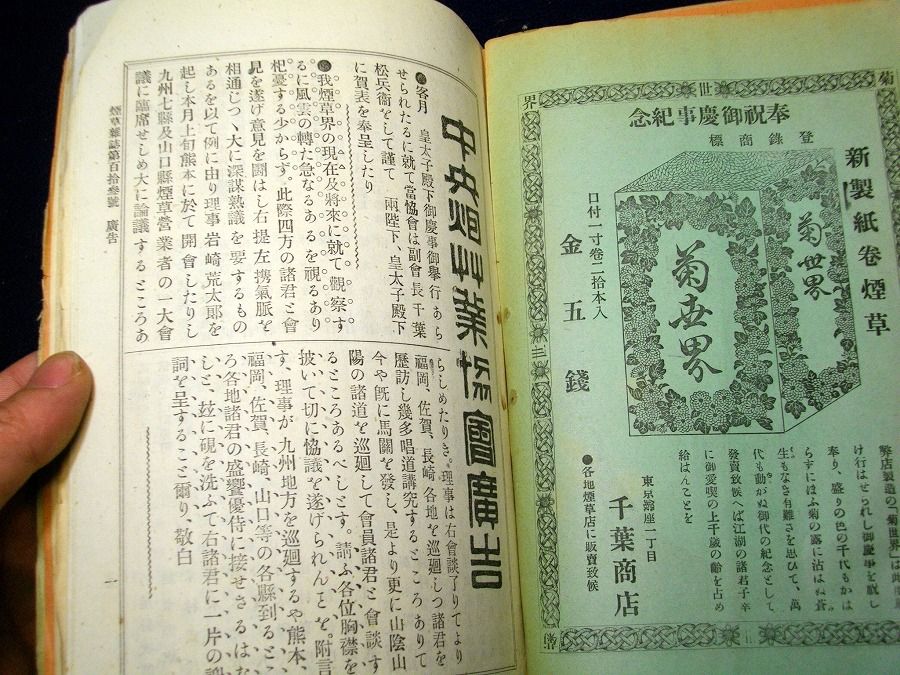 菊
世
界
奉祝御慶事紀念
登錄商標
新製紙卷煙草
菊世界
菊世界
口付一寸卷二拾本入
金五錢
弊店製造の「菊世界」は
け行はせられし御慶事を祝し
奉り、盛りの色の千代もかは
らずにほふ菊の露に沾はぬ蒼
生もなき有難さを思ひて、萬
代も動かぬ御代の紀念として
發賣致候へば江湖の諸君子幸
に御愛喫の上千歳の齡を占め
給はんことを
東京銀座一丁目
千葉商店
●各地煙草店に販賣致候
中央烟艸業協會廣吿
●客月 皇太子殿下御慶事御擧行あら
せられたるに就て當協會は副會長千葉
松兵衞をして謹て 兩陛下、皇太子殿下
に賀表を奉呈したり
●我煙草界の現在及將來に就て觀察す
るに風雲の轉た急なるあるを視るあり
杞憂する少からず。此際四方の諸君と會
見を遂げ意見を鬪はし右提左携氣脈を
相通じつゝ大に深謀熟議を要するもの
あるを以て例に由り理事岩崎荒太郎を
起し本月上旬熊本に於て開會したりし
九州七縣及山口縣煙草營業者の一大會
議に臨席せしめ大に論議するところあ
らしめたりき。理事は右會談了りてより
福岡、佐賀、長崎各地を巡廻しつ諸君を
歷訪し幾多唱道講究するところありて
今や既に馬關を發し、是より更に山陰山
陽の諸道を巡廻して會員諸君と會談す
るところあるべしとす。請ふ各位胸襟を
披いて切に協議を遂げられんを。附言
す、理事が九州地方を巡廻するや熊本、
福岡、佐賀、長崎、山口等の各縣到るとこ
ろ各地諸君の盛饗優待に接せさるはな
しと、玆に硯を洗ふて右諸君に一片の謝
詞を呈すること爾り、敬白
煙草雜誌第百拾參號 廣吿
一